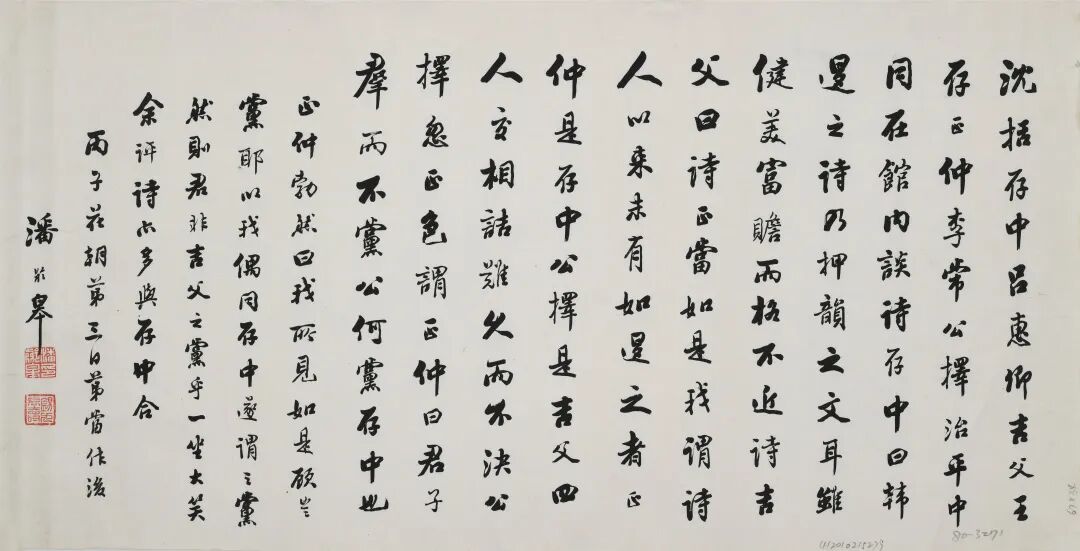 沈括存中吕惠卿吉父王
存正仲李常公擇治平中
同在館内談詩存中曰韩
退之詩乃押韻之文耳雖
健美富贍而格不近詩吉
父曰詩正當如是我謂詩
人以来未有如退之者正
仲是存中公擇是吉父四
人交相詰難久而不决公
擇忽正色謂正仲曰君子
羣而不黨公何黨存中也
正仲勃然曰我所見如是顾豈
黨耶以我偶同存中遂謂之黨
然則君非吉父之黨乎一坐大笑
余評詩亦多與存中合
丙子花朝第三日
潘齡皋
80-3271